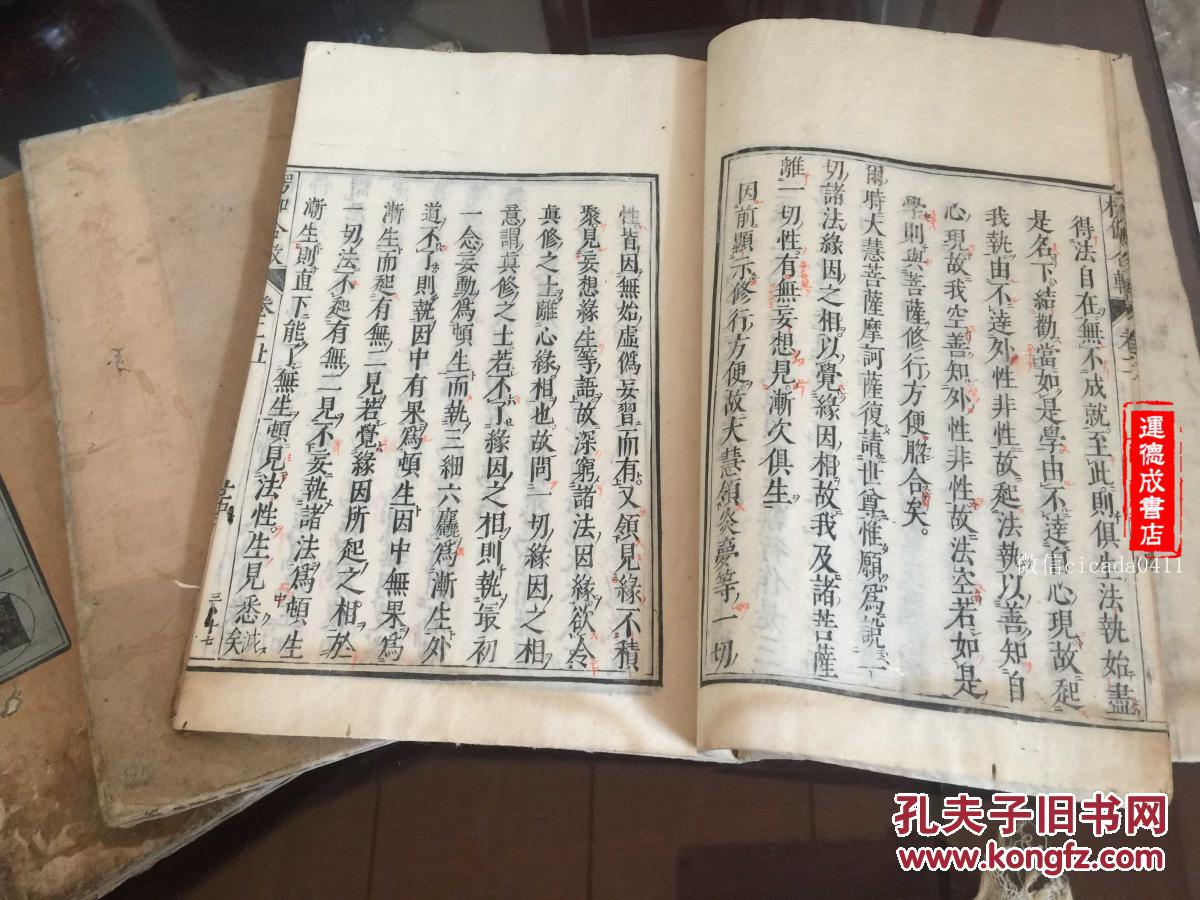 得法自在無不成就至此則俱生法執始盡
是名下結勸當如是學由不達心現故起
我執由不達外性非性故起法執以善知自
心現故我空善知外性非性故法空若如是
學則與菩薩修行方便脗合矣
爾時大慧菩薩摩訶薩復請世尊惟願為說一
切諸法緣因之相以覺緣因相故我及諸菩薩
離一切性有無妄想見漸次俱生
因前顯示修行方便故大慧領炎夢等一切
性皆因無始虛偽妄習而有又領見緣不積
聚見妄想緣生等語故深窮諸法因緣欲令
真修之士離心緣相也故問一切緣因之相
意謂真修之士若不了緣因之相則執最初
一念妄動為頓生而執三細六麤為漸生外
道不了則執因中有果為頓生因中無果為
漸生而起有無二見若覺緣因所起之相於
一切法不起有無二見不妄執諸法為頓生
漸生則直下能了無生頓見法性生見悉滅矣
楞伽合轍
卷二
運德成書店
微信cicada0411
孔夫子旧书网
www.kongfz.com